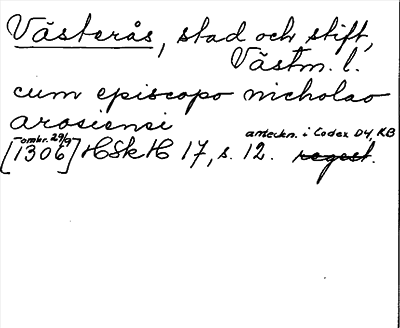 Västerås, stad och stift,
Västm. l.
cum episcopo nicholao
arosiensi
omkr. 29/9 anteckn. i Codex D4, KB
[1306] HSkH 17, s. 12. regest.